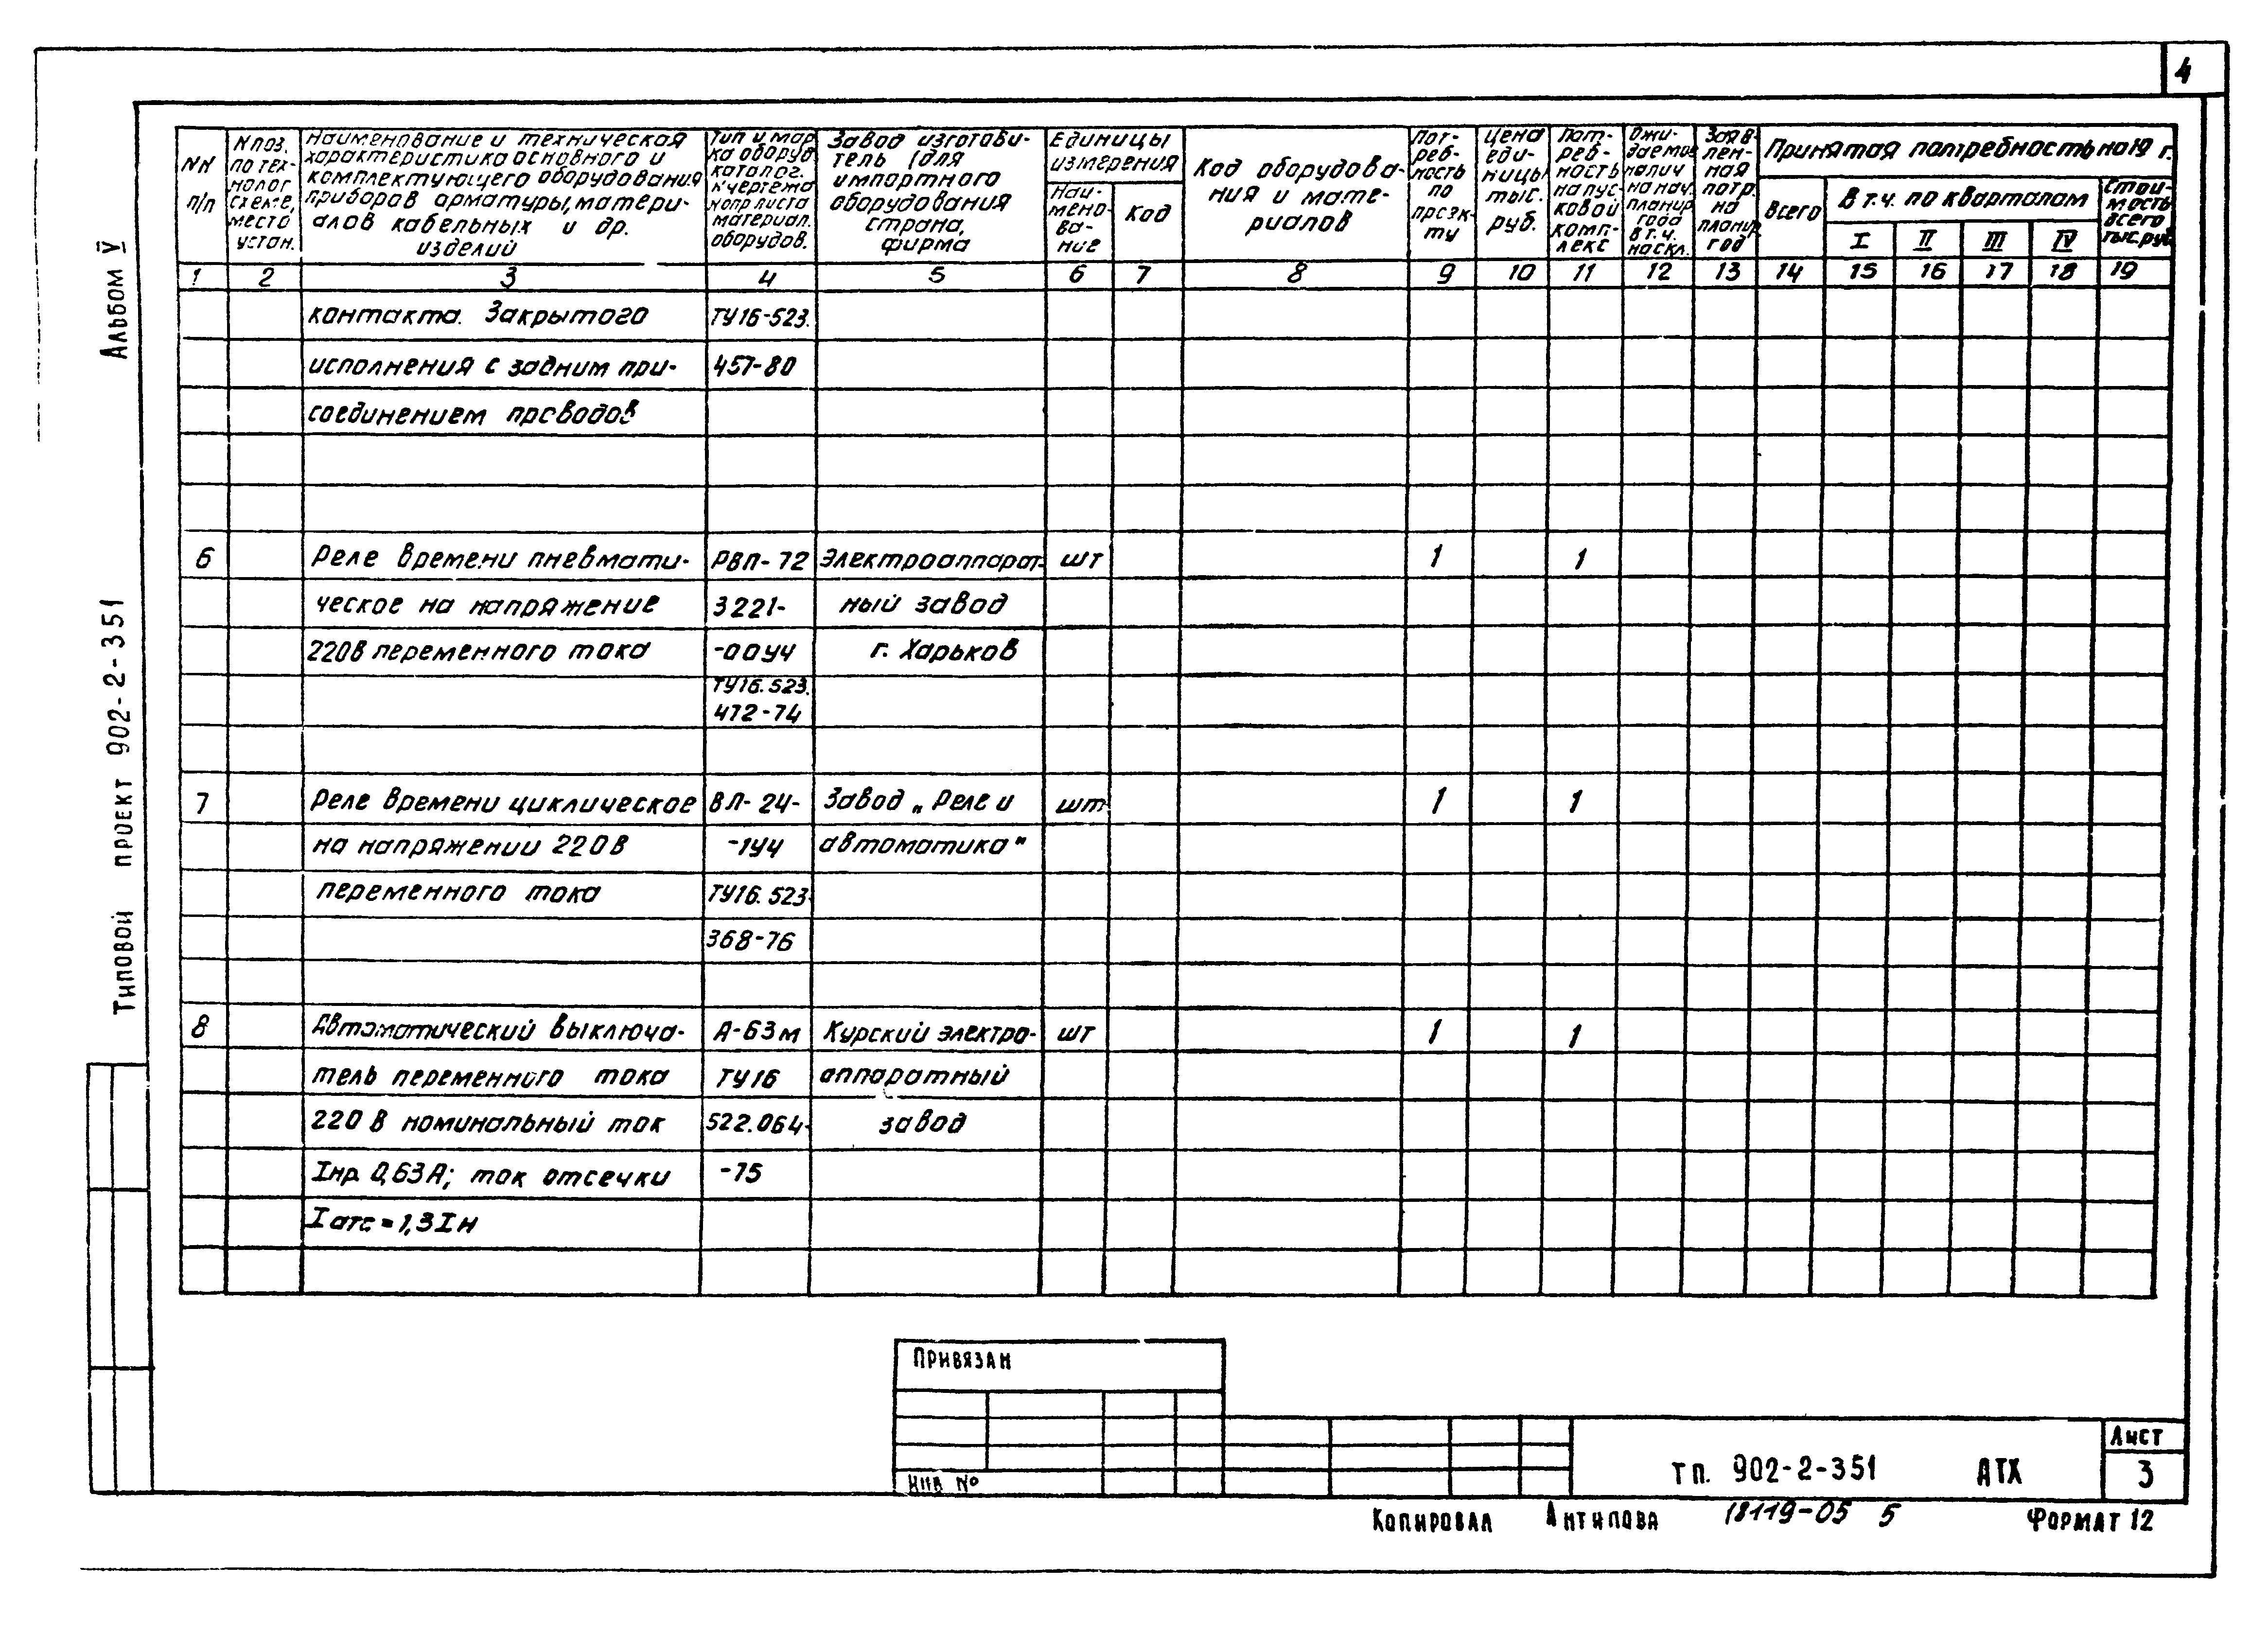 4
Альбом V
Типовой проект 902-2-351
NN п/п
N поз. по технолог схеме, место устан.
Наименование и техническая
характеристика основного и
комплектующего оборудования
приборов арматуры, матери-
алов кабельных и др.
изделий
Тип и мар
ка оборуд.
каталог.
N чертежа
материал.
оборудов.
Завод изготови-
тель (для
импортного
оборудования
страна,
фирма
Единицы
измерения
Наи-
мено-
ва-
ние
Код
Код оборудова-
ния и мате-
риалов
Пот-
реб-
ность
по
проэк-
ту
Цена
еди-
ницы
тыс.
руб.
Пот-
реб-
ность
на пус-
ковой
комп-
лекс
Ожи-
даемое
налич
на нач.
планир
года
в т.ч.
на скл.
Заяв-
лен-
ная
потр.
на
планир
год
Принятая потребность на 19 г.
Всего
В т.ч. по кварталам
I II III IV
Стои-
мость
всего
тыс.руб
1 2 3 4 5 6 7 8 9 10 11 12 13 14 15 16 17 18 19
контакта. Закрытого ТУ16-523.
исполнения с задним при- 457-80
соединением проводов
6 Реле времени пневмати- РВП-72 Электроаппарат- шт 1 1
ческое на напряжение 3221- ный завод
220В переменного тока -00У4 г. Харьков
ТУ16.523.
472-74
7 Реле времени циклическое ВЛ-24- Завод „Реле и шт 1 1
на напряжении 220В -1У4 автоматика"
переменного тока ТУ16.523-
368-76
8 Автоматический выключа- А-63м Курский электро- шт 1 1
тель переменного тока ТУ16 аппаратный
220 В номинальный ток 522.064- завод
Iнр 0,63А; ток отсечки -75
Iотс=1,3Iн
Привязан
Инв №
ТП. 902-2-351 АТХ
Лист
3
Копировал Антипова 18119-05 5 Формат 12